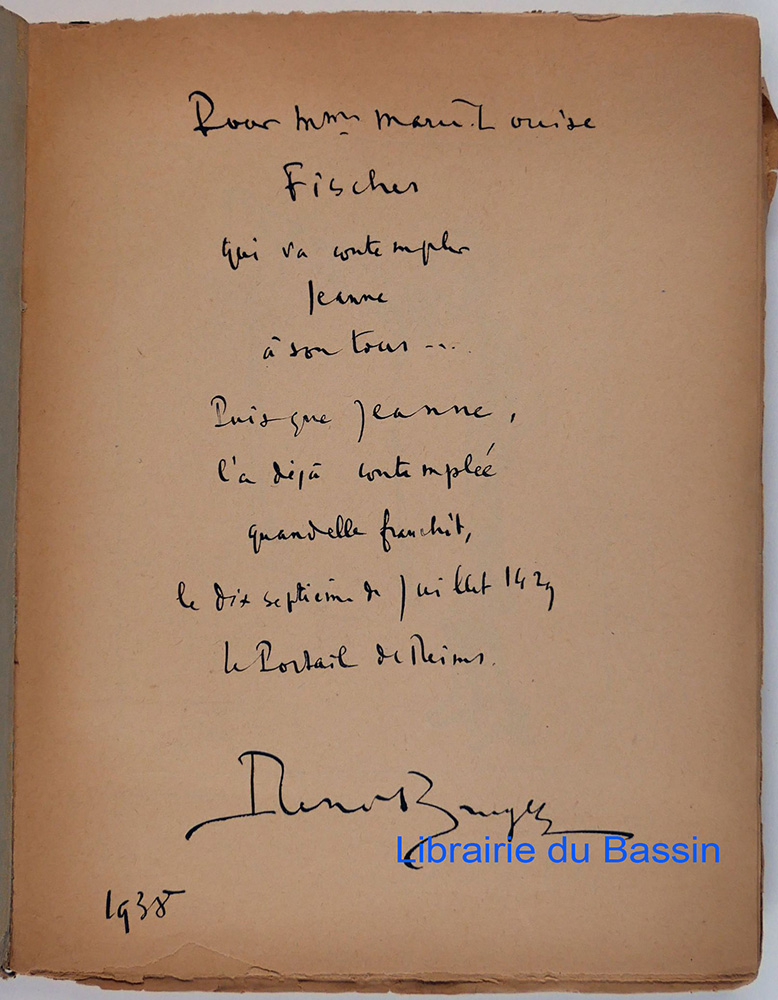 Pour Mme Marie-Louise
Fischer
qui va contempler
Jeanne
à son tour ...
Puisque Jeanne,
l'a déjà contemplée
quand elle franchit,
le dix septième de Juillet 1429
le Portail de Reims.
Librairie du Bassin